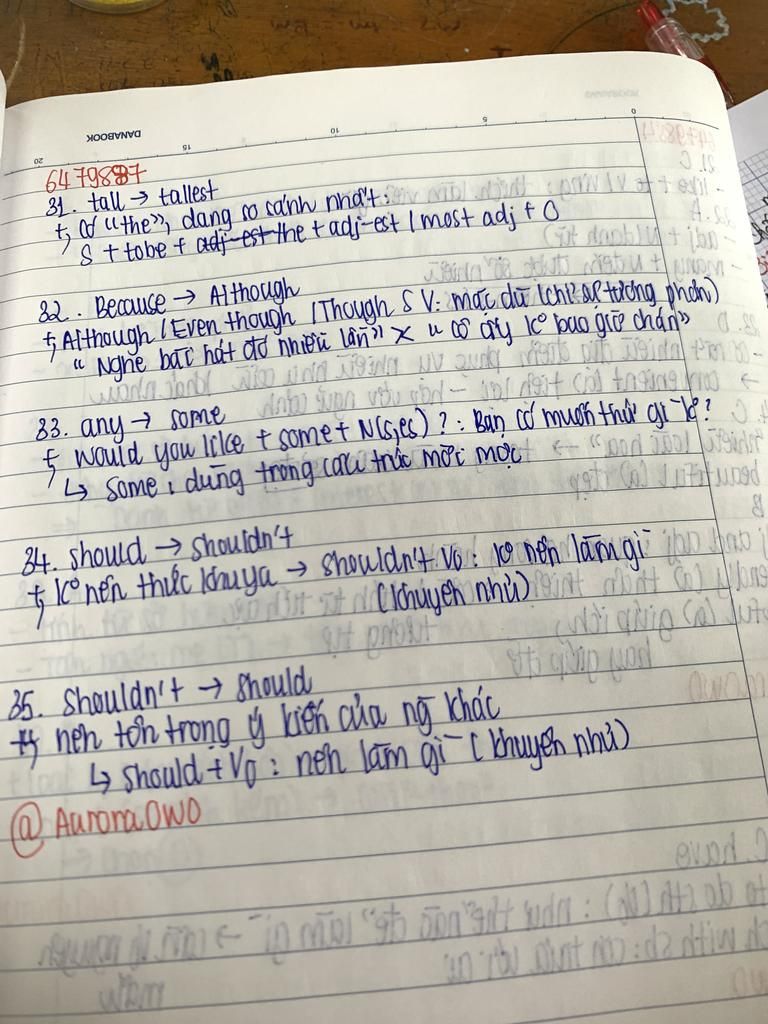 DANABOOK
20 15 10 5 0
6479887
31. tall → tallest
+, có "the", dạng so sánh nhất:
S + tobe + adj-est the + adj-est / most adj + O
32. Because → Although
+, Although / Even though / Though S V: mặc dù (chỉ sự tương phản)
"Nghe bài hát đó nhiều lần" × "cô ấy kº bao giờ chán"
33. any → some
+, Would you like + some + N(s,es) ? : Bạn có muốn thứ gì kº?
↳ some: dùng trong cấu trúc mời mọc
34. should → shouldn't
+, kº nên thức khuya → shouldn't V0 : kº nên làm gì
(khuyên nhủ)
35. Shouldn't → should
+, nên tôn trọng ý kiến của ng khác
↳ should + V0 : nên làm gì (khuyên nhủ)
@AuroraOWO